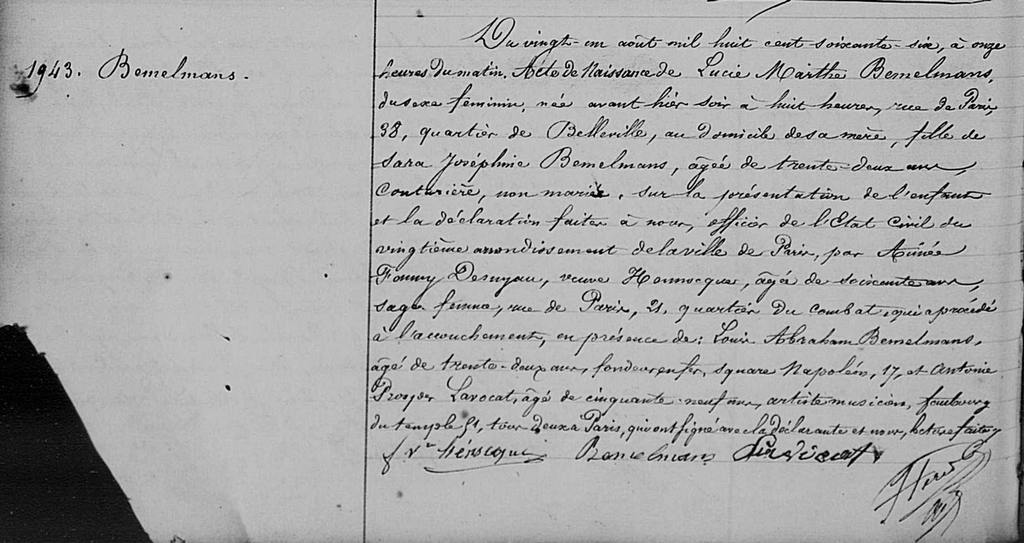 1943. Bemelmans.
Du vingt-un août mil huit cent soixante-six, à onze
heures du matin, Acte de Naissance de Lucie Marthe Bemelmans,
du sexe féminin, née avant hier soir à huit heures, rue de Paris,
38, quartier de Belleville, au domicile de sa mère, fille de
Sara Joséphine Bemelmans, âgée de trente-deux ans,
couturière, non mariée. Sur la présentation de l'enfant
et la déclaration faites à nous, officier de l'Etat Civil du
vingtième arrondissement de la ville de Paris, par Aimée
Fanny, veuve Hennocque, âgée de soixante ans,
sage-femme, rue de Paris, 21, quartier du combat, qui a procédé
à l'accouchement, en présence de: Louis Abraham Bemelmans,
âgé de trente-deux ans, fondeur en fer, square Napoléon, 17, et Antonin
Lavocat, âgé de cinquante-neuf ans, artiste musicien, faubourg
du temple 51, tous deux à Paris, qui ont signé avec la déclarante et nous, lecture faite
Bemelmans